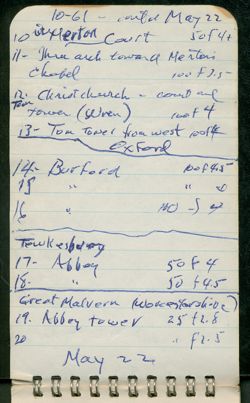 10-61 - May 22
10 Merton Court 50 f 4
11- Thru arch toward Merton
Chapel 100 f 2.5
12- Christchurch - court and
Tom tower (Wren) 100 f 4
13- Tom Tower from west 100 f 4
Oxford
14- Burford 100 f 4.5
15 " "
16 "
Tewkesbury
17- Abbey 50 f 4
18- " 50 f 4.5
Great Malvern (Worcestershire)
19. Abbey tower 25 f 2.8
20 " f 2.5
May 22